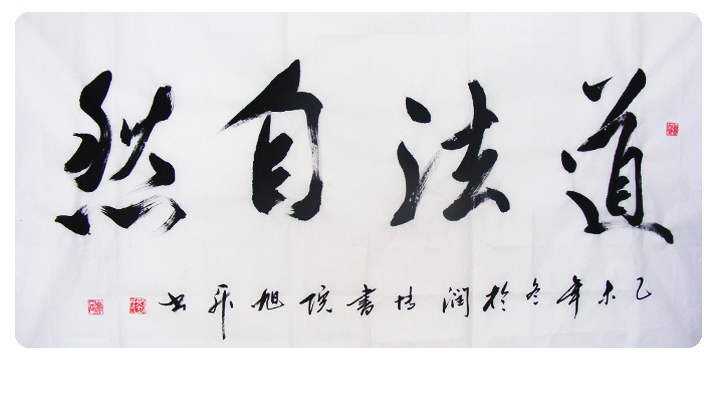 道法自然
乙未年冬於潤墙書院旭昇书